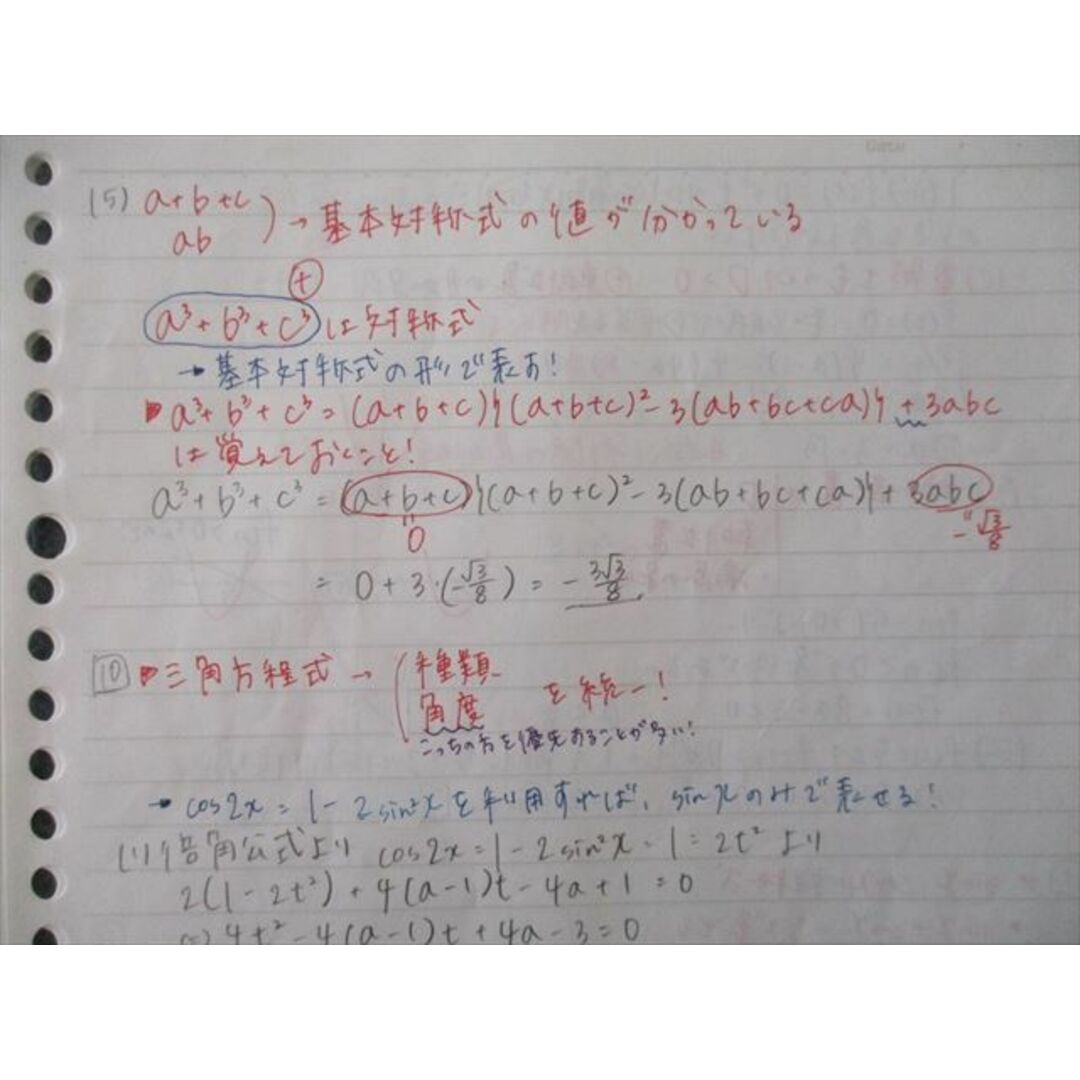 (5) a+b+c
ab ) → 基本対称式の値が分かっている
⊕
a³+b³+c³ は対称式
→ 基本対称式の形で表す!
a³+b³+c³ = (a+b+c){(a+b+c)²-3(ab+bc+ca)}+3abc
は覚えておくこと!
a³+b³+c³ = (a+b+c){(a+b+c)²-3(ab+bc+ca)}+3abc
" 0
" -√3/8
= 0+3・(-√3/8) = -3√3/8
10 三角方程式 → ( 種類
角度 を統一!
こっちの方を優先することが多い!
→ cos2x = 1-2sin²x を利用すれば、sinxのみで表せる!
(1) 倍角公式より cos2x=1-2sin²x=1=2t² より
2(1-2t²)+4(a-1)t-4a+1=0
⇔ 4t²-4(a-1)t+4a-3=0